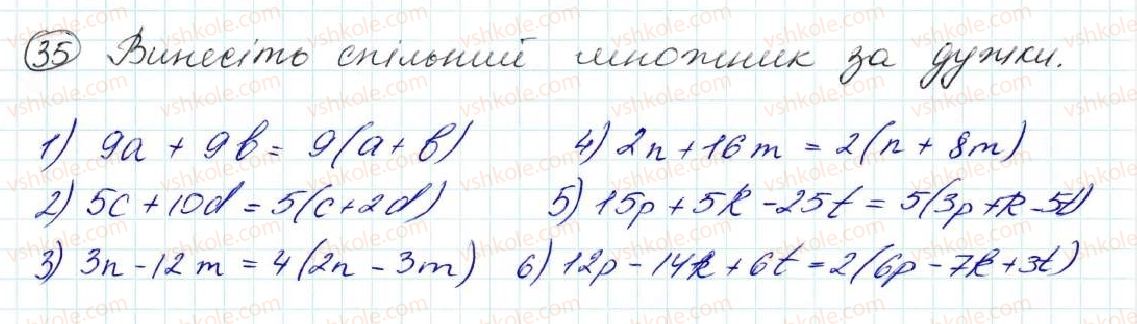 35 Винесіть спільний множник за дужки.
1) 9a + 9b = 9(a + b)
4) 2n + 16m = 2(n + 8m)
2) 5c + 10d = 5(c + 2d)
5) 15p + 5k - 25t = 5(3p + k - 5t)
3) 3n - 12m = 4(2n - 3m)
6) 12p - 14k + 6t = 2(6p - 7k + 3t)
vshkole.com